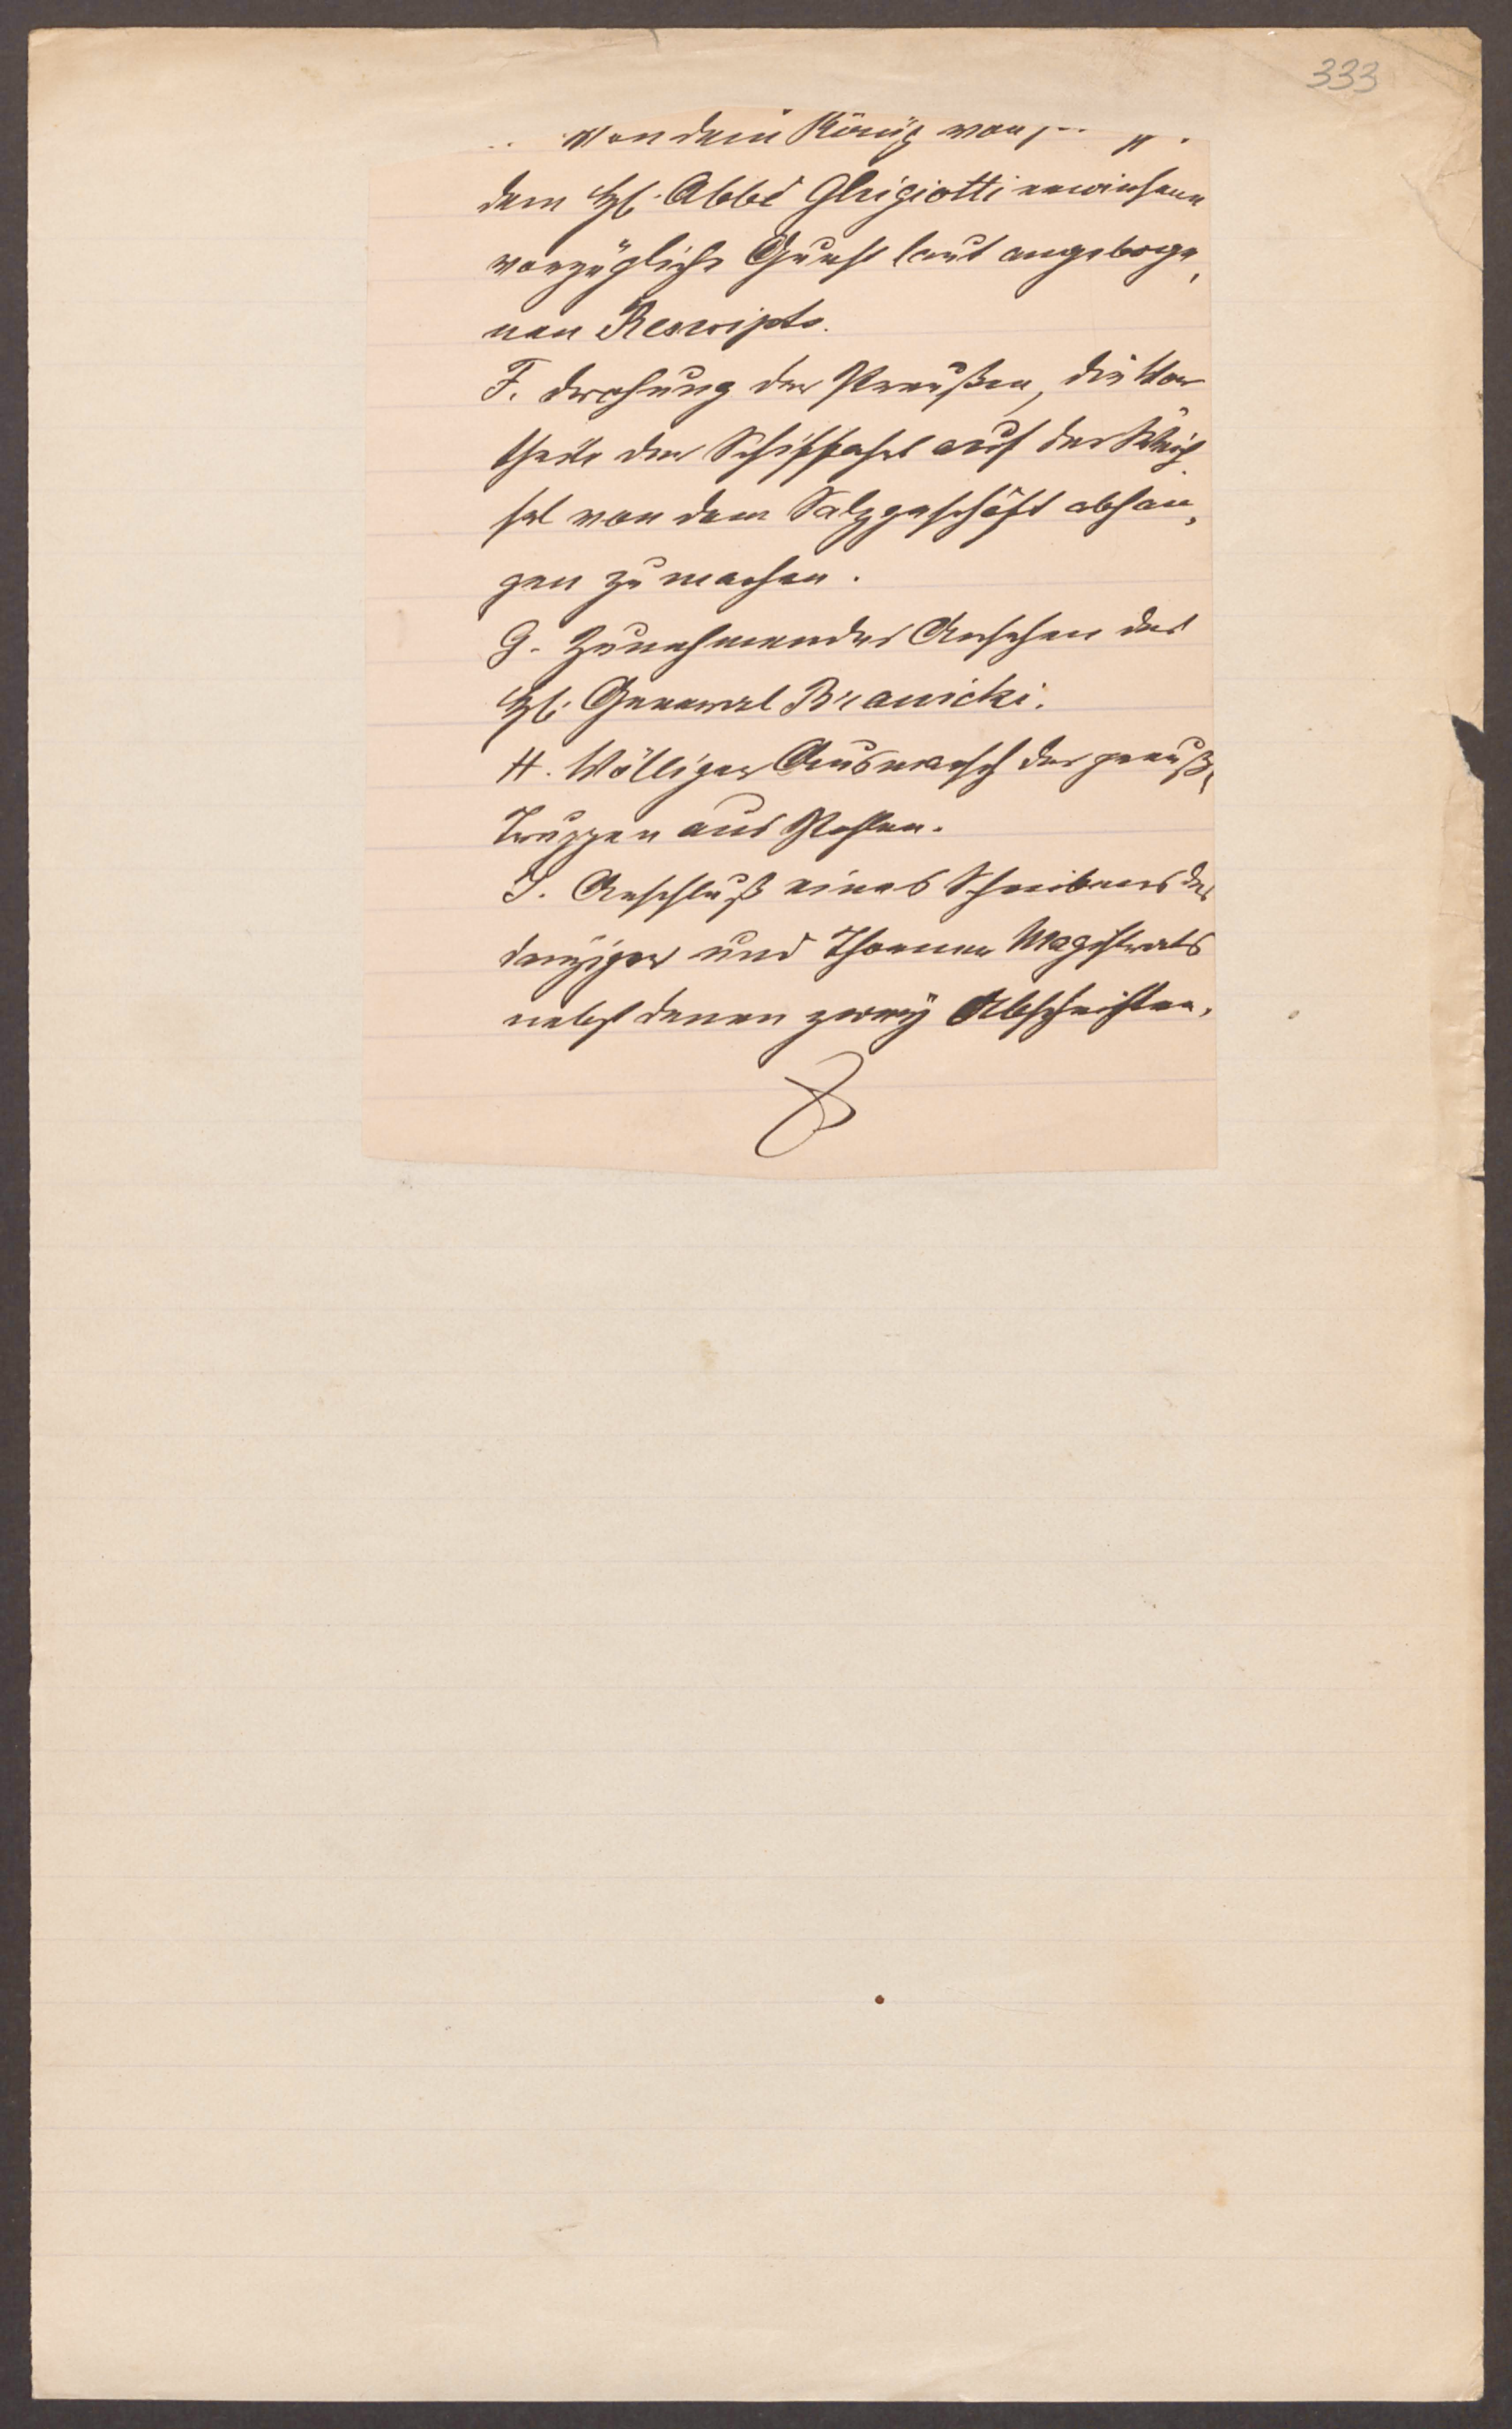 333
von dem König von
dem H: Abbé Ghigiotti erwiesene
vorzügliche Gunst laut angeboge,
nen Rescripts.
F. Drohung der Preußen, die Vor
theile der Schiffahrt auf der Weich
sel von dem Salzgeschäft abhän,
gen zu machen.
G. Zunehmendes Ansehen des
H: General Branicki.
H. Völliger Ausmarsch der preuß:
Truppen aus Pohlen.
I. Anschluß eines Schreibens des
danziger und Thorner Magistrats
nebst denen zwey Abschriften.